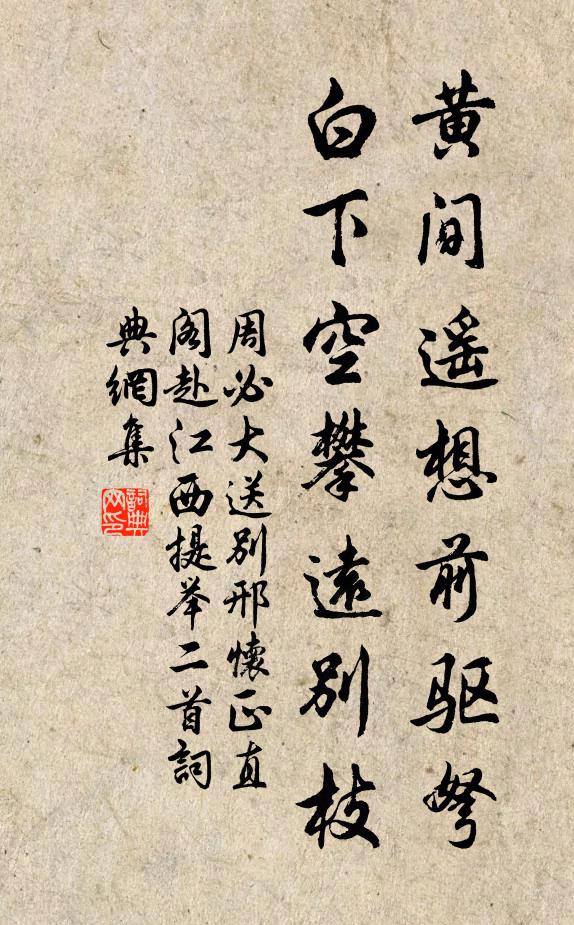 黄间遥想前驱弩
白下空攀遠别枝
周必大送别邢懷正直
阁赴江西提举二首詞
典網集
詞典网印